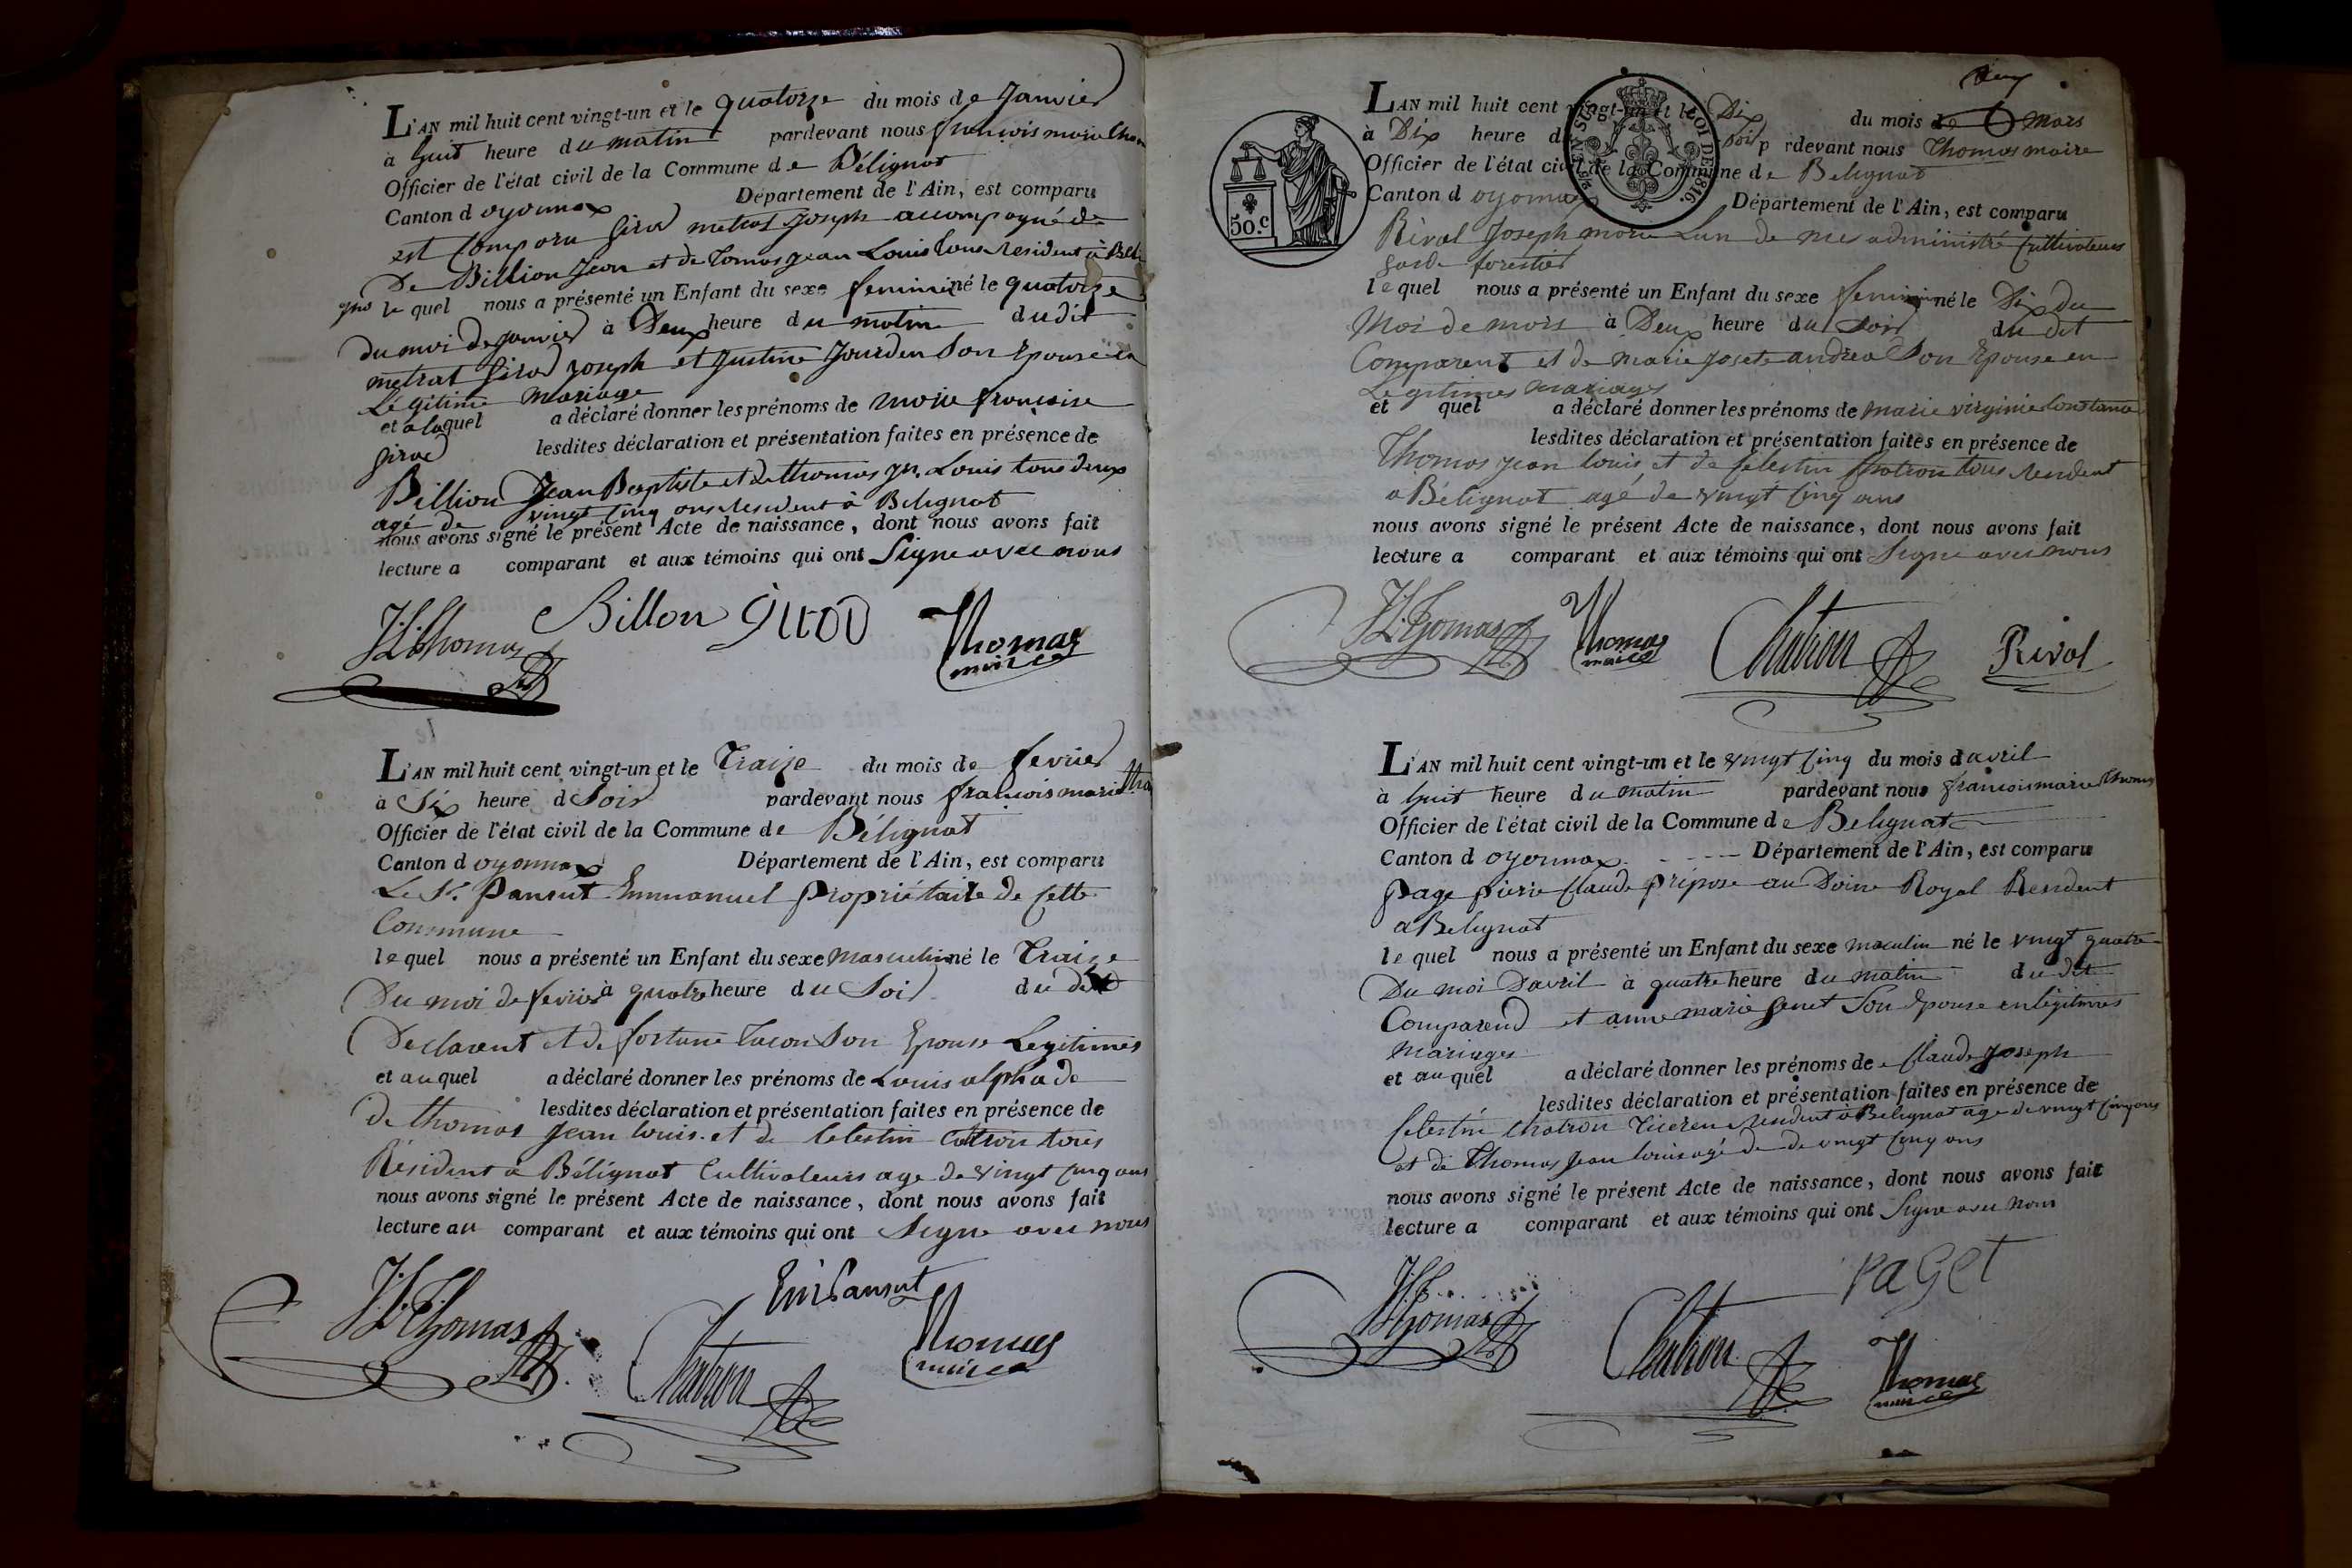 L'AN mil huit cent vingt-un et le quatorze du mois de Janvier
à huit heure du matin pardevant nous françois marie thom
Officier de l'état civil de la Commune de Bélignat
Canton d oyonnax Département de l'Ain, est comparu
est Comparu Girod metrat Joseph accompagné de
De Billion Jean et de tomas jean Louis tous resident à Béli
gnat le quel nous a présenté un Enfant du sexe feminin né le quatorze
du moi de janvier à Deux heure du matin du dit
metrat Girod joseph et Justine Jourden son Epouse en
Légitime Mariage
et a laquel a déclaré donner les prénoms de marie francoise
Girod lesdites déclaration et présentation faites en présence de
Billion Jean Baptiste et de thomas jn. Louis tous deux
agé de vingt cinq ans resident à Bélignat
nous avons signé le présent Acte de naissance, dont nous avons fait
lecture a comparant et aux témoins qui ont Signe avec nous
J:L:thomas Billon Girod Thomas
maire
L'AN mil huit cent vingt-un et le Traize du mois de fevrier
à Six heure d Soir pardevant nous francois marie tho
Officier de l'état civil de la Commune de Bélignat
Canton d oyonnax Département de l'Ain, est comparu
Le Sr. Pansut Emmanuel propriétaire de Cette
Commune
le quel nous a présenté un Enfant du sexe masculin né le Traize
Du moi de fevrier à quatre heure du Soir du dit
Declarent et de fortune tacon Son Epouse Legitimes
et au quel a déclaré donner les prénoms de Louis alphade
de thomas lesdites déclaration et présentation faites en présence de
Jean louis. et de Celestin Catron tous
Résident à Bélignat Cultivateurs age de vingt cinq ans
nous avons signé le présent Acte de naissance, dont nous avons fait
lecture au comparant et aux témoins qui ont Signe avec nous
J:L:Thomas Em Pansut
Chatron Thomas
maire
deux
L'AN mil huit cent vingt-un et le Dix du mois de mars
à Dix heure d soir p rdevant nous Thomas maire
Officier de l'état civil de la Commune de Belignat
Canton d oyonnax Département de l'Ain, est comparu
50.c
LOI DE 1816.
Rival Joseph marie Lun de mes administré Cultivateurs
garde forestier
le quel nous a présenté un Enfant du sexe feminin né le Dix du
Moi de mars à Deux heure du Soir du dit
Comparent et de marie josete andrea Son Epouse en
Legitimes mariages
et quel a déclaré donner les prénoms de marie virginie Constance
lesdites déclaration et présentation faites en présence de
Thomas jean louis et de Celestin Chatron tous resident
a Bélignat agé de vingt Cinq ans
nous avons signé le présent Acte de naissance, dont nous avons fait
lecture a comparant et aux témoins qui ont Signe avec nous
J:L:Thomas Thomas Chatron Rival
maire
L'AN mil huit cent vingt-un et le vingt Cinq du mois davril
à huit heure du matin pardevant nous francois marie Thomas
Officier de l'état civil de la Commune de Belignat
Canton d oyonnax Département de l'Ain, est comparu
page pierre Claude préposé au Doine Royal Resident
a Belignat
le quel nous a présenté un Enfant du sexe masculin né le vingt quatre
Du moi Davril à quatre heure du matin du dit
Comparend et anne marie Genet Son Epouse en légitimes
Mariages
et au quel a déclaré donner les prénoms de Claude Joseph
lesdites déclaration et présentation faites en présence de
Celestin Chatron resident à Belignat age de vingt Cinq ans
et de Thomas Jean louis agé de de vingt Cinq ans
nous avons signé le présent Acte de naissance, dont nous avons fait
lecture a comparant et aux témoins qui ont Signe avec nous
PaGet
J:L:Thomas Chatron Thomas
maire